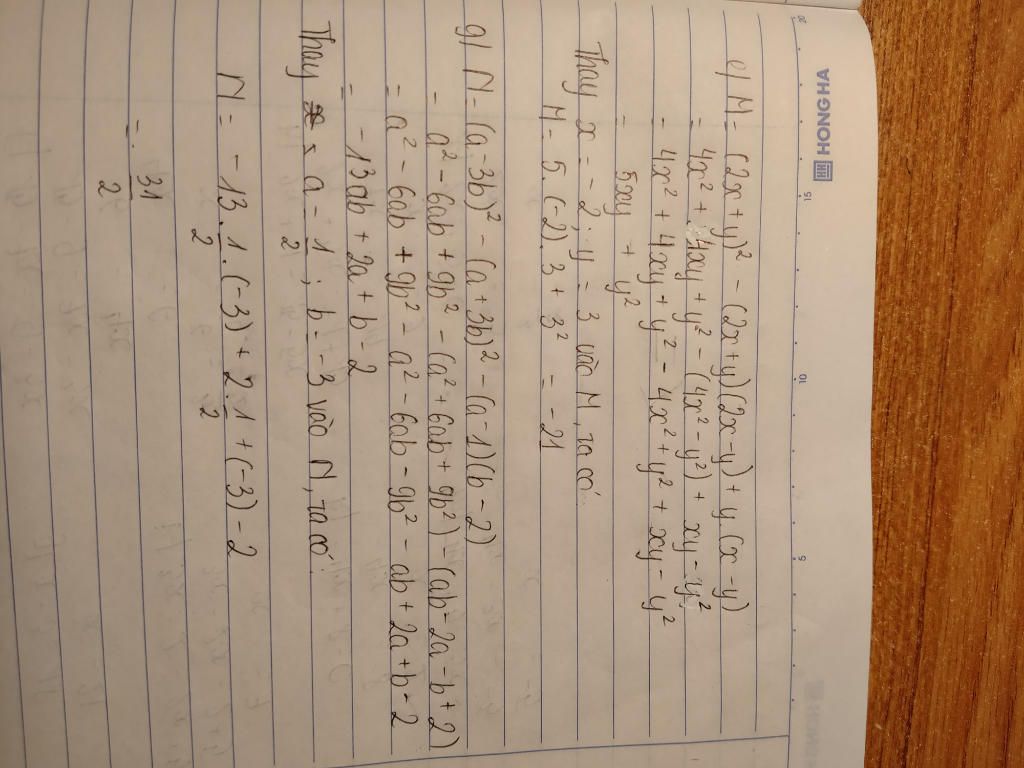 HONG HA
20
15
10
5
e) M = (2x + y)² - (2x + y)(2x - y) + y.(x - y)
= 4x² + 4xy + y² - (4x² - y²) + xy - y²
= 4x² + 4xy + y² - 4x² + y² + xy - y²
= 5xy + y²
Thay x = -2; y = 3 vào M, ta có:
M = 5.(-2).3 + 3² = -21
g) N = (a - 3b)² - (a + 3b)² - (a - 1)(b - 2)
= a² - 6ab + 9b² - (a² + 6ab + 9b²) - (ab - 2a - b + 2)
= a² - 6ab + 9b² - a² - 6ab - 9b² - ab + 2a + b - 2
= -13ab + 2a + b - 2
Thay a = 1/2; b = -3 vào N, ta có:
N = -13.1/2.(-3) + 2.1/2 + (-3) - 2
= 31/2